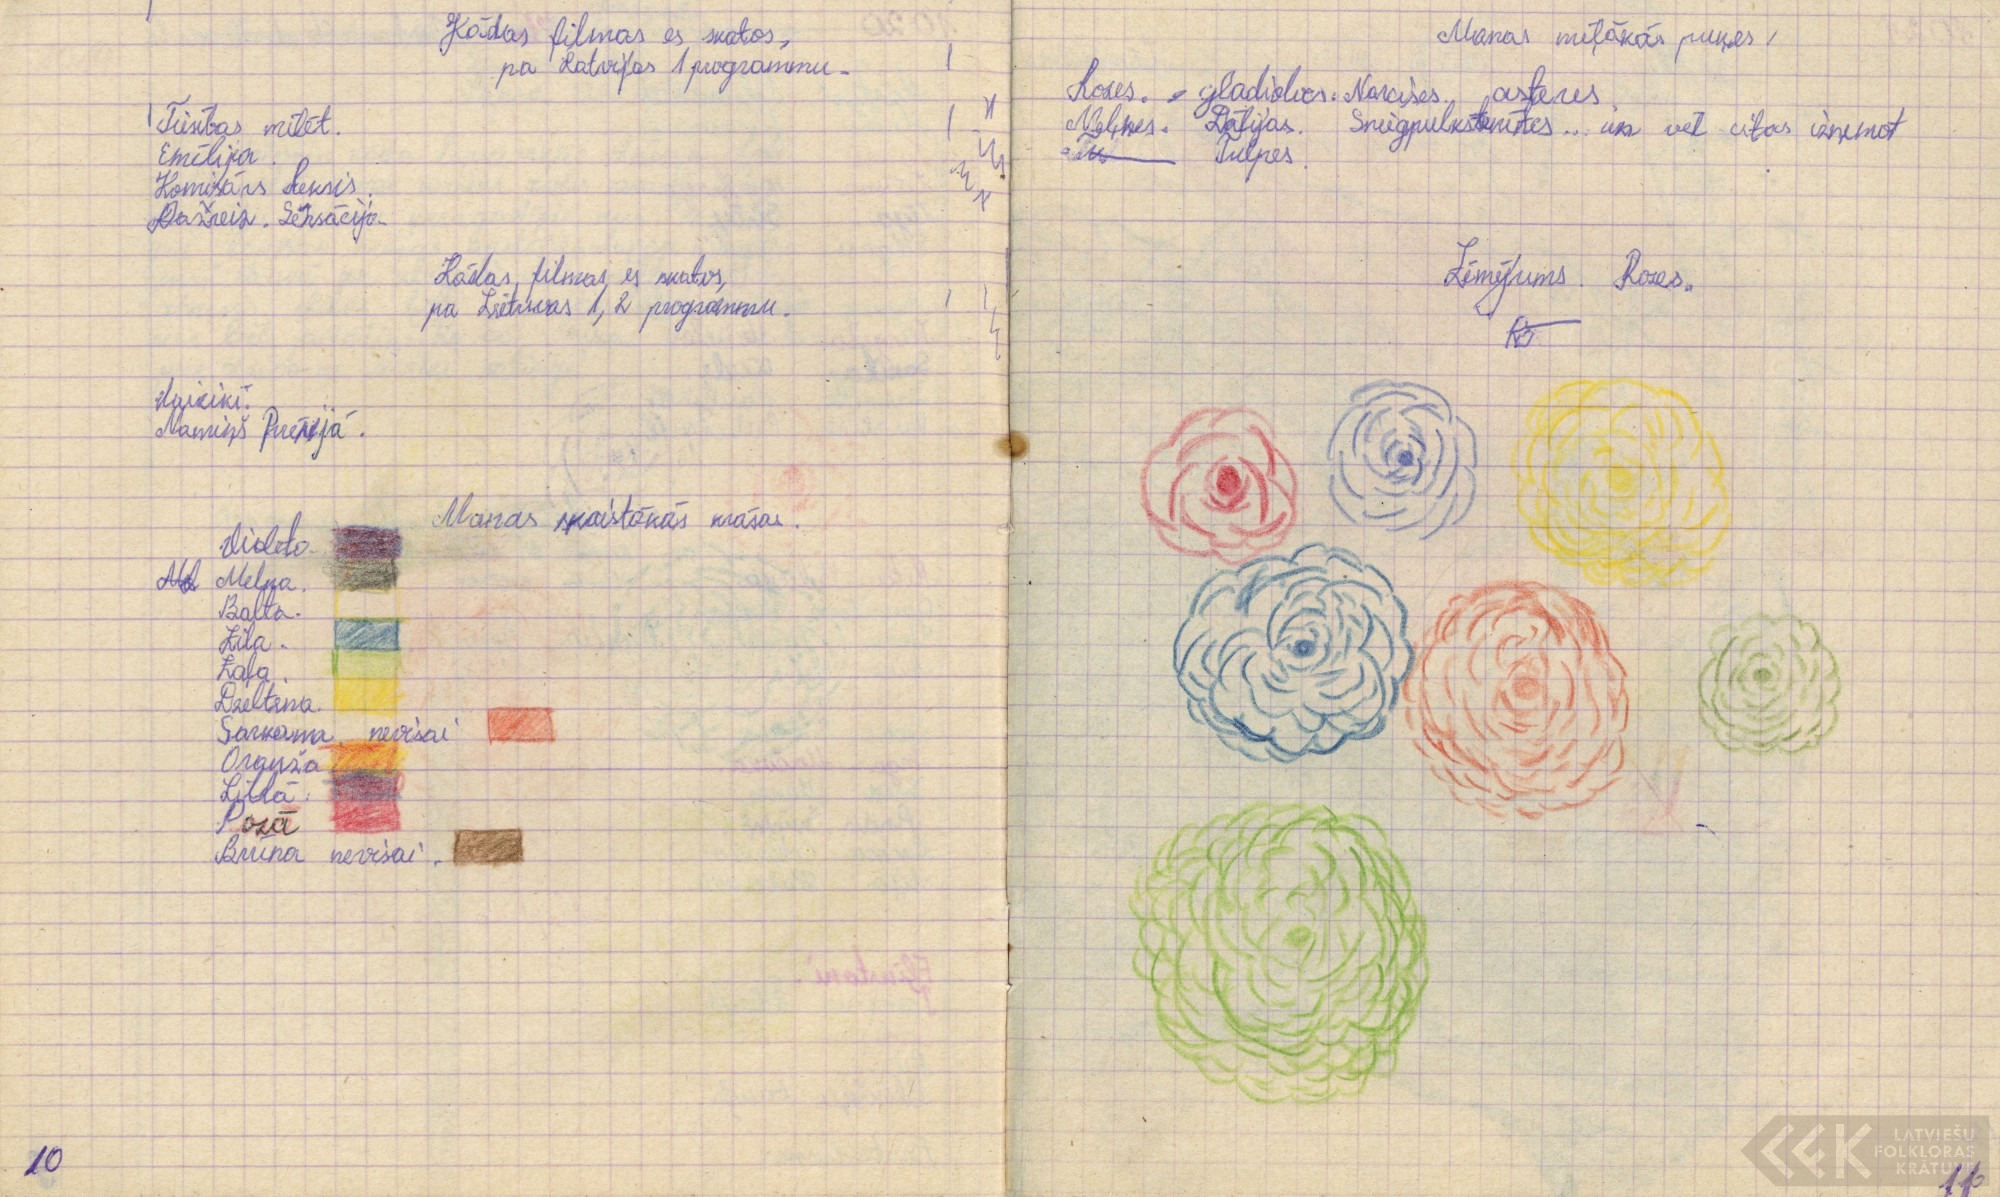 Kādas filmas es skatos,
pa Latvijas 1 programmu.
Tiesības mīlēt.
Emīlija.
Komisārs Reksis.
Dažreiz. Sensācija
Kādas filmas es skatos,
pa Lietuvas 1, 2 programmu.
Namiņš Prērijā.
Manas skaistākās krāsas.
Violeta.
Mel Melna.
Balta.
Zila.
Zaļa.
Dzeltena.
Sarkana nevisai
Oranža
Lillā.
Rozā
Brūna nevisai.
10
Manas mīļākās puķes,
Rozes. gladiolas. Narcises. asteres
Neļķes. Dālijas. Sniegpulkstenītes... un vēl citas izņemot
Tulpes.
Zīmējums. Rozes.
LATVIEŠU
FOLKLORAS
KRĀTUVE
11